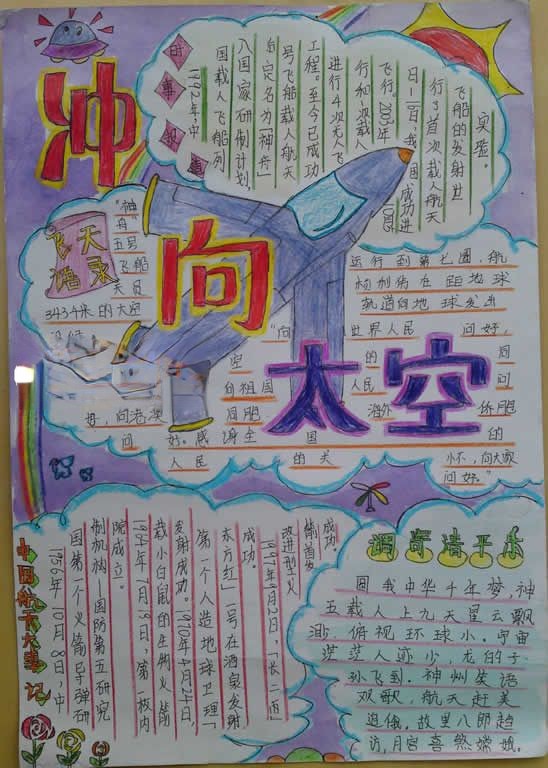 冲向太空
时事报道
1992年中
国载人飞船列
入国家研制计划,
后定名为「神舟」
号飞船载人航天
工程。至今已成功
进行4次无人飞
行和1次载人
飞行。2003年10月15
日-16日,我国成功进
行了首次载人航天
飞船的发射
实验。
飞天语录
"神舟"五号飞船 运行到第七圈,航
天员 杨利伟在距地球
3434米的太空 轨道向地球发出
"向 世界人民 问好,
空 的 同
向祖国 人民 问
好,向港澳 同胞 海外 侨胞
问 好。感谢全 国 的
人民 的关 怀,向大家
问好。"
中国航天大事记
1956年10月8日,中
国第一个火箭导弹研
制机构—国防第五研究
院成立。
1964年7月19日,第一枚内
载小白鼠的生物火箭
发射成功。1970年4月24日,
第一个人造地球卫理「
东方红」一号在酒泉发射
成功。
1997年9月2日,「长二丙」
改进型火
箭首发
成功。
调寄清平乐
圆我中华千年梦,神
五载人上九天星云飘
渺,俯视环球小。宇宙
茫茫人迹少,龙的子
孙飞到。神州笑语
欢歌,航天赶美
追俄,故里八郎趋
访,月宫喜煞嫦娥。